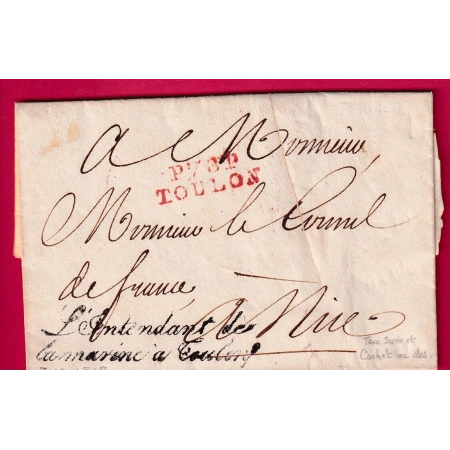 a Monsieur
P.78.P
TOULON
Monsieur le Consul
de france
a Nice
L'Intendant de
la marine à Toulon
Taxe Sarde et
Cachet au dos.